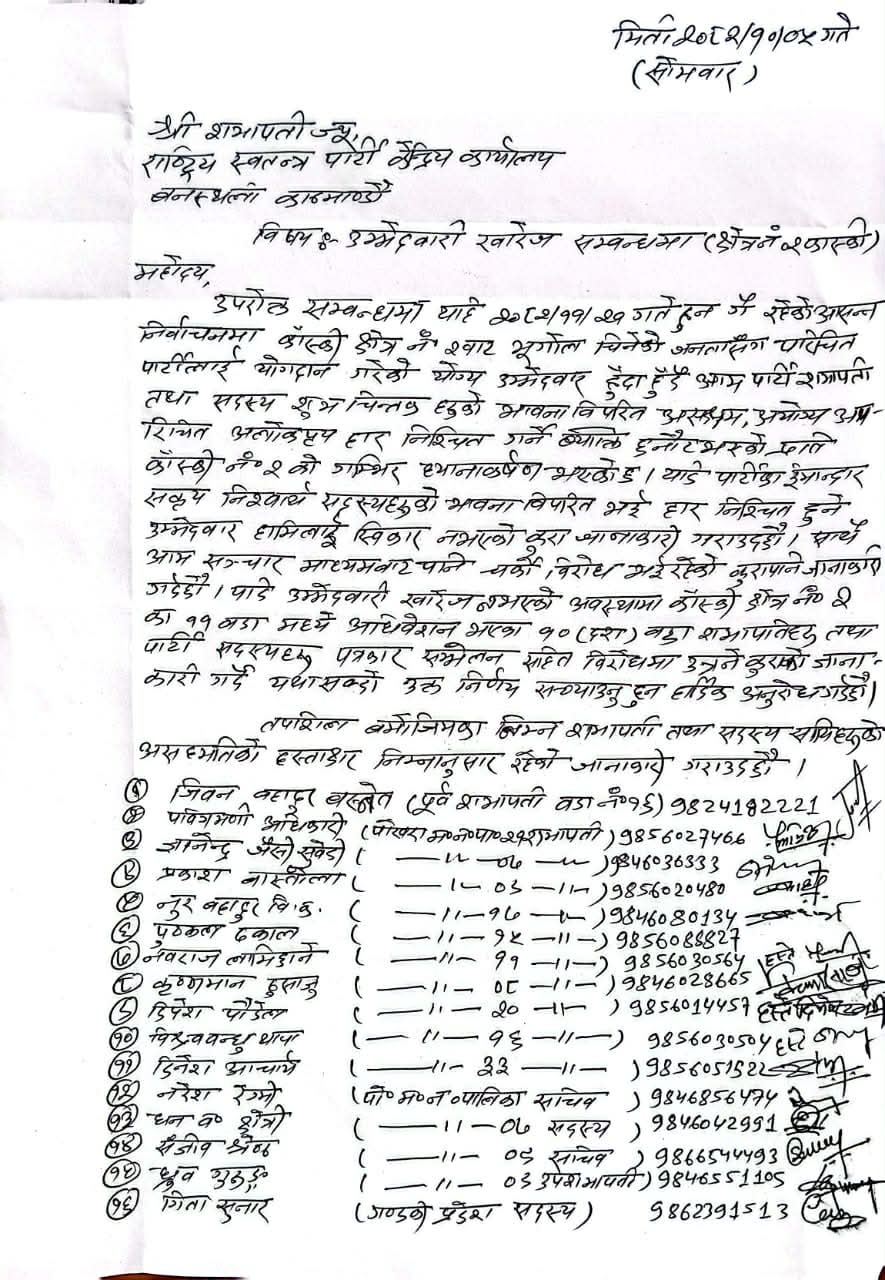 मिती २०८२/१०/०५ गते
(सोमवार)
श्री सभापती ज्यू,
राष्ट्रिय स्वतन्त्र पार्टी केंद्रिय कार्यालय
बनस्थली काठमाण्डौ
विषय :- उम्मेदवारी खारेज सम्वन्धमा (क्षेत्र नं २ कास्की)
महोदय,
उपरोक्त सम्वन्धमा यहि २०८२/११/२१ गते हुन गै रहेको आसन्न
निर्वाचनमा कास्की क्षेत्र नं २ वाट भूगोल चिनेको जनतासँग परिचित
पार्टीलाई योगदान गरेको योग्य उम्मेदवार हुँदा हुँदै आम पार्टी सभापती
तथा सदस्य शुभ चिन्तक हरुको भावना विपरित असक्षम, अयोग्य अप-
रिचित अलोकप्रृय हार निश्चित गर्ने ब्याक्ति छनौट भएको प्रति
कास्की नं० २ को गम्भिर ध्यानाकर्षण भएको छ । यदि पार्टीका इमान्दार
सकृय निश्वार्थ सदस्यहरुको भावना विपरित भई हार निश्चित हुने
उम्मेदवार हामिलाई स्विकार नभएको कुरा जानाकारी गराउदछौ । साथै
आम सञ्चार माध्यमवाट पनि चर्को विरोध भई रहेको कुरा पनि जानाकारी
गर्दछौ । यदि उम्मेदवारी खारेज नभएको अवस्थामा कास्की क्षेत्र नं० २
का ११ वडा मध्ये अधिवेशन भएका १० (दश) वडा सभापतिहरु तथा
पार्टी सदस्यहरू पत्रकार सम्मेलन सहित विरोधमा उत्रने कुराको जाना-
कारी गर्दै यथासक्दो उक्त निर्णय सच्याउनु हुन हार्दिक अनुरोध गर्दछौ।
तपशिल बमोजिमका निम्न सभापती तथा सदस्य साथिहरुको
असहमतिको हस्ताक्षर निम्नानुसार रहेको जानाकारी गराउदछौ ।
१ जिवन बहादुर बस्नेत (पूर्व सभापती वडा नं० १६) 9824182221
२ पवित्रमणी अधिकारी (पोखरा म०न०पा० २१ सभापती) 9856027466
३ ज्ञानेन्द्र जैसी सुवेदी ( —॥— ०७ —॥— ) 9846036333
४ प्रकाश वास्तोला ( —॥— ०३ —॥— ) 9856020480
५ नुर बहादुर वि.क. ( —॥— १७ —॥— ) 9846080134
६ पुष्कल ढकाल ( —॥— १५ —॥— ) 9856088827
७ नवराज लामिछाने ( —॥— ११ —॥— ) 9856030564
८ कृष्णमान हुसाजु ( —॥— ०८ —॥— ) 9846028665
९ दिपेश पौडेल ( —॥— २० —॥— ) 9856014457
१० विश्वबन्धु थापा ( —॥— १६ —॥— ) 9856030504
११ दिनेश आचार्य ( —॥— ३३ —॥— ) 9856051522
१२ नरेश रेग्मी (पो०म०न०पालिका सचिव ) 9846856474
१३ धन ब० क्षेत्री ( —॥— ०७ सदस्य ) 9846042991
१४ संजीव श्रेष्ठ ( —॥— ०३ सचिव ) 9866544493
१५ ध्रुव गुरुङ ( —॥— ०३ उपसभापती) 9846551105
१६ गिता सुनार (गण्डकी प्रदेश सदस्य) 9862391513